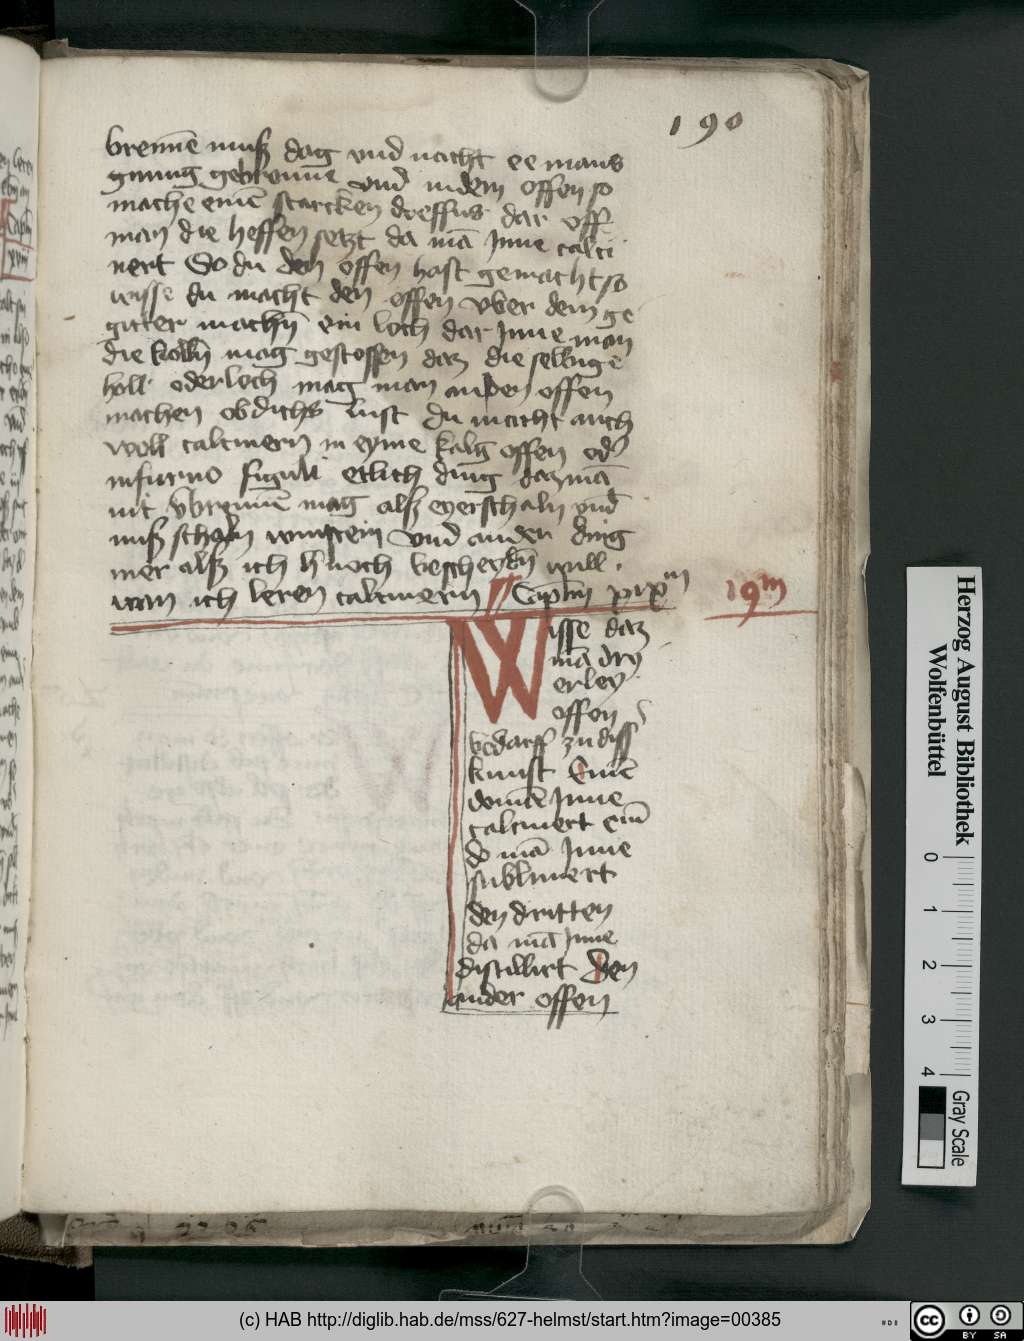 190
brenne͂ muß dag vnd nacht ee mans
gnung gebrenne vnd in dem offen so
mache eine͂ starcken dreffus dar vff
man die heffen setzt da ma͂ Inne calci
nert So du den offen hast gemacht so
wisse du macht den offen vber dem ge
gitter mach͂n ein loch dar Inne man
die koll͂n mag gestossen daz die selbige
holl oder loch mag man an den offen
machen ob dichs lust du macht auch
woll calcinern in eyme kalg offen od͛
in furno figuli etlich ding daz ma͂
nit v͛brenne͂ mag alß eyerschaln vnd
nuß schaln winstein vnd ander ding
mer alß ich h͛ noch bescheyd͂n will
wan ich leren calcinern Cap͂lm xix m 19m
Wisse daz
ma͂ dry
erley
offen
bedarff zu diss
kunst Eine͂
do ine͂ Inne
calcinert ein͂
do ma͂ Inne
sublimert
den dritten
da ma͂ Inne
distillirt Den
ander offen
Herzog August Bibliothek
Wolfenbüttel
0 1 2 3 4
Gray Scale
(c) HAB http://diglib.hab.de/mss/627-helmst/start.htm?image=00385
cc BY SA